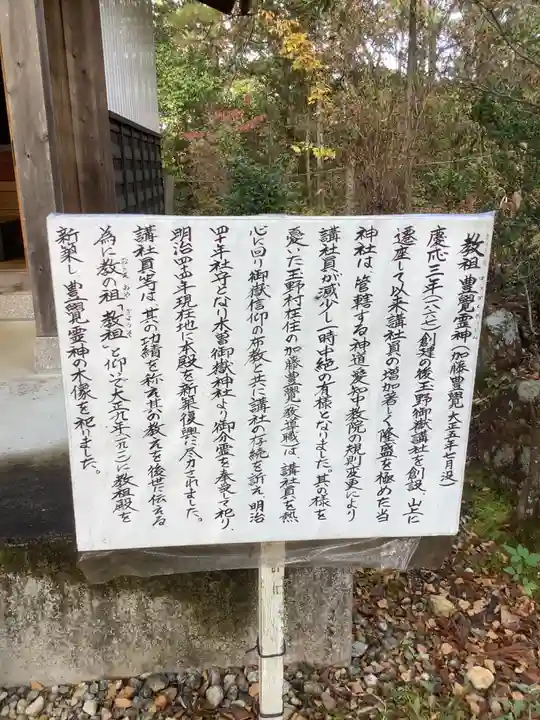 教祖 豊覺霊神 (加藤豊覺 大正五年七月没)
慶応三年(一八六七)創建の後玉野御嶽講社を創設、山上に
遷座して以来講社員の増加著しく隆盛を極めた当
神社は、管轄する神道愛知中教院の規則変更により
講社員が減少し一時中絶の有様となりました。其の様を
憂いた玉野村在住の加藤豊覺(教導職)は、講社員を熱
心に回り御嶽信仰の布教と共に講社の存続を訴え、明治
四十年社守となり木曽御嶽神社より御分霊を奉戴して祀り、
明治四四年現在地に本殿を新築復興に尽力されました。
講社員等は、其の功績を称え其の教えを後世に伝える
為に教の祖「教祖」と仰いで大正九年(一九二〇)に教祖殿を
新築し、豊覺霊神の木像を祀りました。